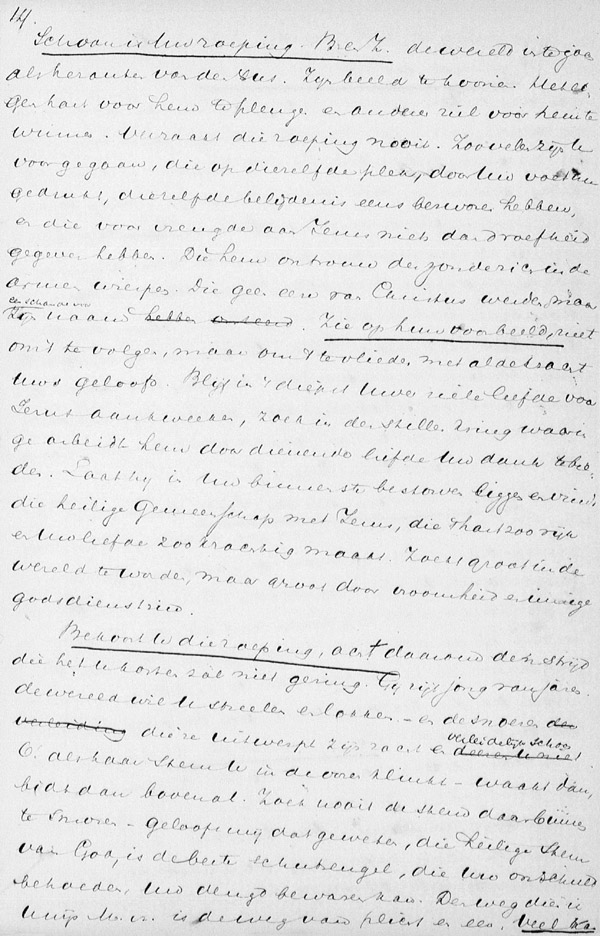 14.
Schoon is Uw roeping. Br. e. Z. de wereld in te gaan
als herauten van den Zus. Zijn beeld te toonen. Het ei-
gen hart voor hem te plengen en anderer ziel voor hem te
winnen. Verzaakt die roeping nooit. Zoovelen zijn U
voorgegaan, die op dezelfde plek, door Uw voet nu
gedrukt, diezelfde belijdenis eens bezworen hebben,
en die voor vreugde aan Jezus niets dan droefheid
gegeven hebben. Die hem ontrouw der zonde zich in de
armen wierpen. Die geen eere van Christus werden, maar
Zijn naam een schande Zie op hun voorbeeld, niet
om 't te volgen, maar om 't te vlieden met al de kracht
Uws geloofs. Blijf in 't diepst Uwer ziele liefde voor
Jezus aankweeken, zoek in den stillen kring waarin
ge arbeidt hem door dienende liefde Uw dank te bie-
den. Laat hij in Uw binnenste bestorven liggen
die heilige Gemeenschap met Jezus, die 't hart zoo rijk
en Uw liefde zoo krachtig maakt. Zoekt groot in de
wereld te worden, maar groot door vroomheid en innige
godsdienstzin.
Behoort U die roeping, acht daarom den strijd
die het U kosten zal niet gering. Gij zijt jong van jaren.
de wereld wil U streelen en lokken – en de snoeren der
verleiding die ze uitwerpt zijn zacht en verleidelijk schoon
O. als haar stem U in de ooren klinkt – waakt dan,
bidt dan bovenal. Zoek nooit de stem daarbinnen
te smoren – geloof mij dat geweten, die heilige stem
van God, is de beste schutsengel, die uw onschuld
behoeden, uw deugd bewaren kan. De weg dien ik
U wijs is de weg van plicht en eer. Veel